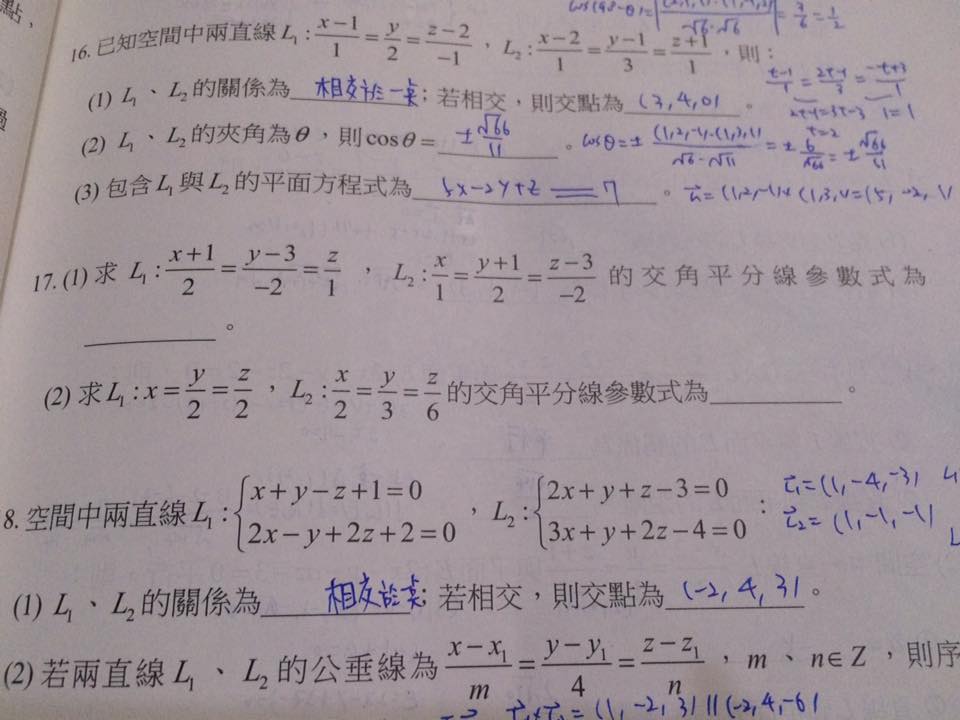 點,
cos(90-θ)=| | = 3/6 = 1/2
√6·√6
16. 已知空間中兩直線L₁ : (x-1)/1 = y/2 = (z-2)/-1 , L₂ : (x-2)/1 = (y-1)/3 = (z+1)/1 , 則 :
(t-1)/1 = (2t-1)/3 = (-t+3)/1
(1) L₁ 、 L₂ 的關係為 相交於一點 ; 若相交 , 則交點為 (3,4,0) 。
2t-1=3t-3 1=1
t=2
(2) L₁ 、 L₂ 的夾角為θ , 則cosθ = ±√66/11 。 cosθ=± (1,2,-1)·(1,3,1)/√6·√11 = ± 6/√66 = ± √66/11
(3) 包含L₁與L₂的平面方程式為 5x-2y+z=7 。 n=(1,2,-1)×(1,3,1)=(5,-2,1)
17. (1) 求 L₁ : (x+1)/2 = (y-3)/-2 = z/1 , L₂ : x/1 = (y+1)/2 = (z-3)/-2 的交角平分線參數式為
。
(2) 求L₁ : x = y/2 = z/2 , L₂ : x/2 = y/3 = z/6 的交角平分線參數式為 。
8. 空間中兩直線L₁ : { x+y-z+1=0 , 2x-y+2z+2=0 , L₂ : { 2x+y+z-3=0 , 3x+y+2z-4=0 :
ℓ₁=(1,-4,-3)
ℓ₂=(1,-1,-1)
(1) L₁ 、 L₂ 的關係為 相交於點 ; 若相交 , 則交點為 (-2,4,3) 。
(2) 若兩直線L₁ 、 L₂ 的公垂線為 (x-x₁)/m = (y-y₁)/4 = (z-z₁)/n , m 、 n∈Z , 則序
ℓ₁×ℓ₂ = (1,-2,3) || (-2,4,-6)